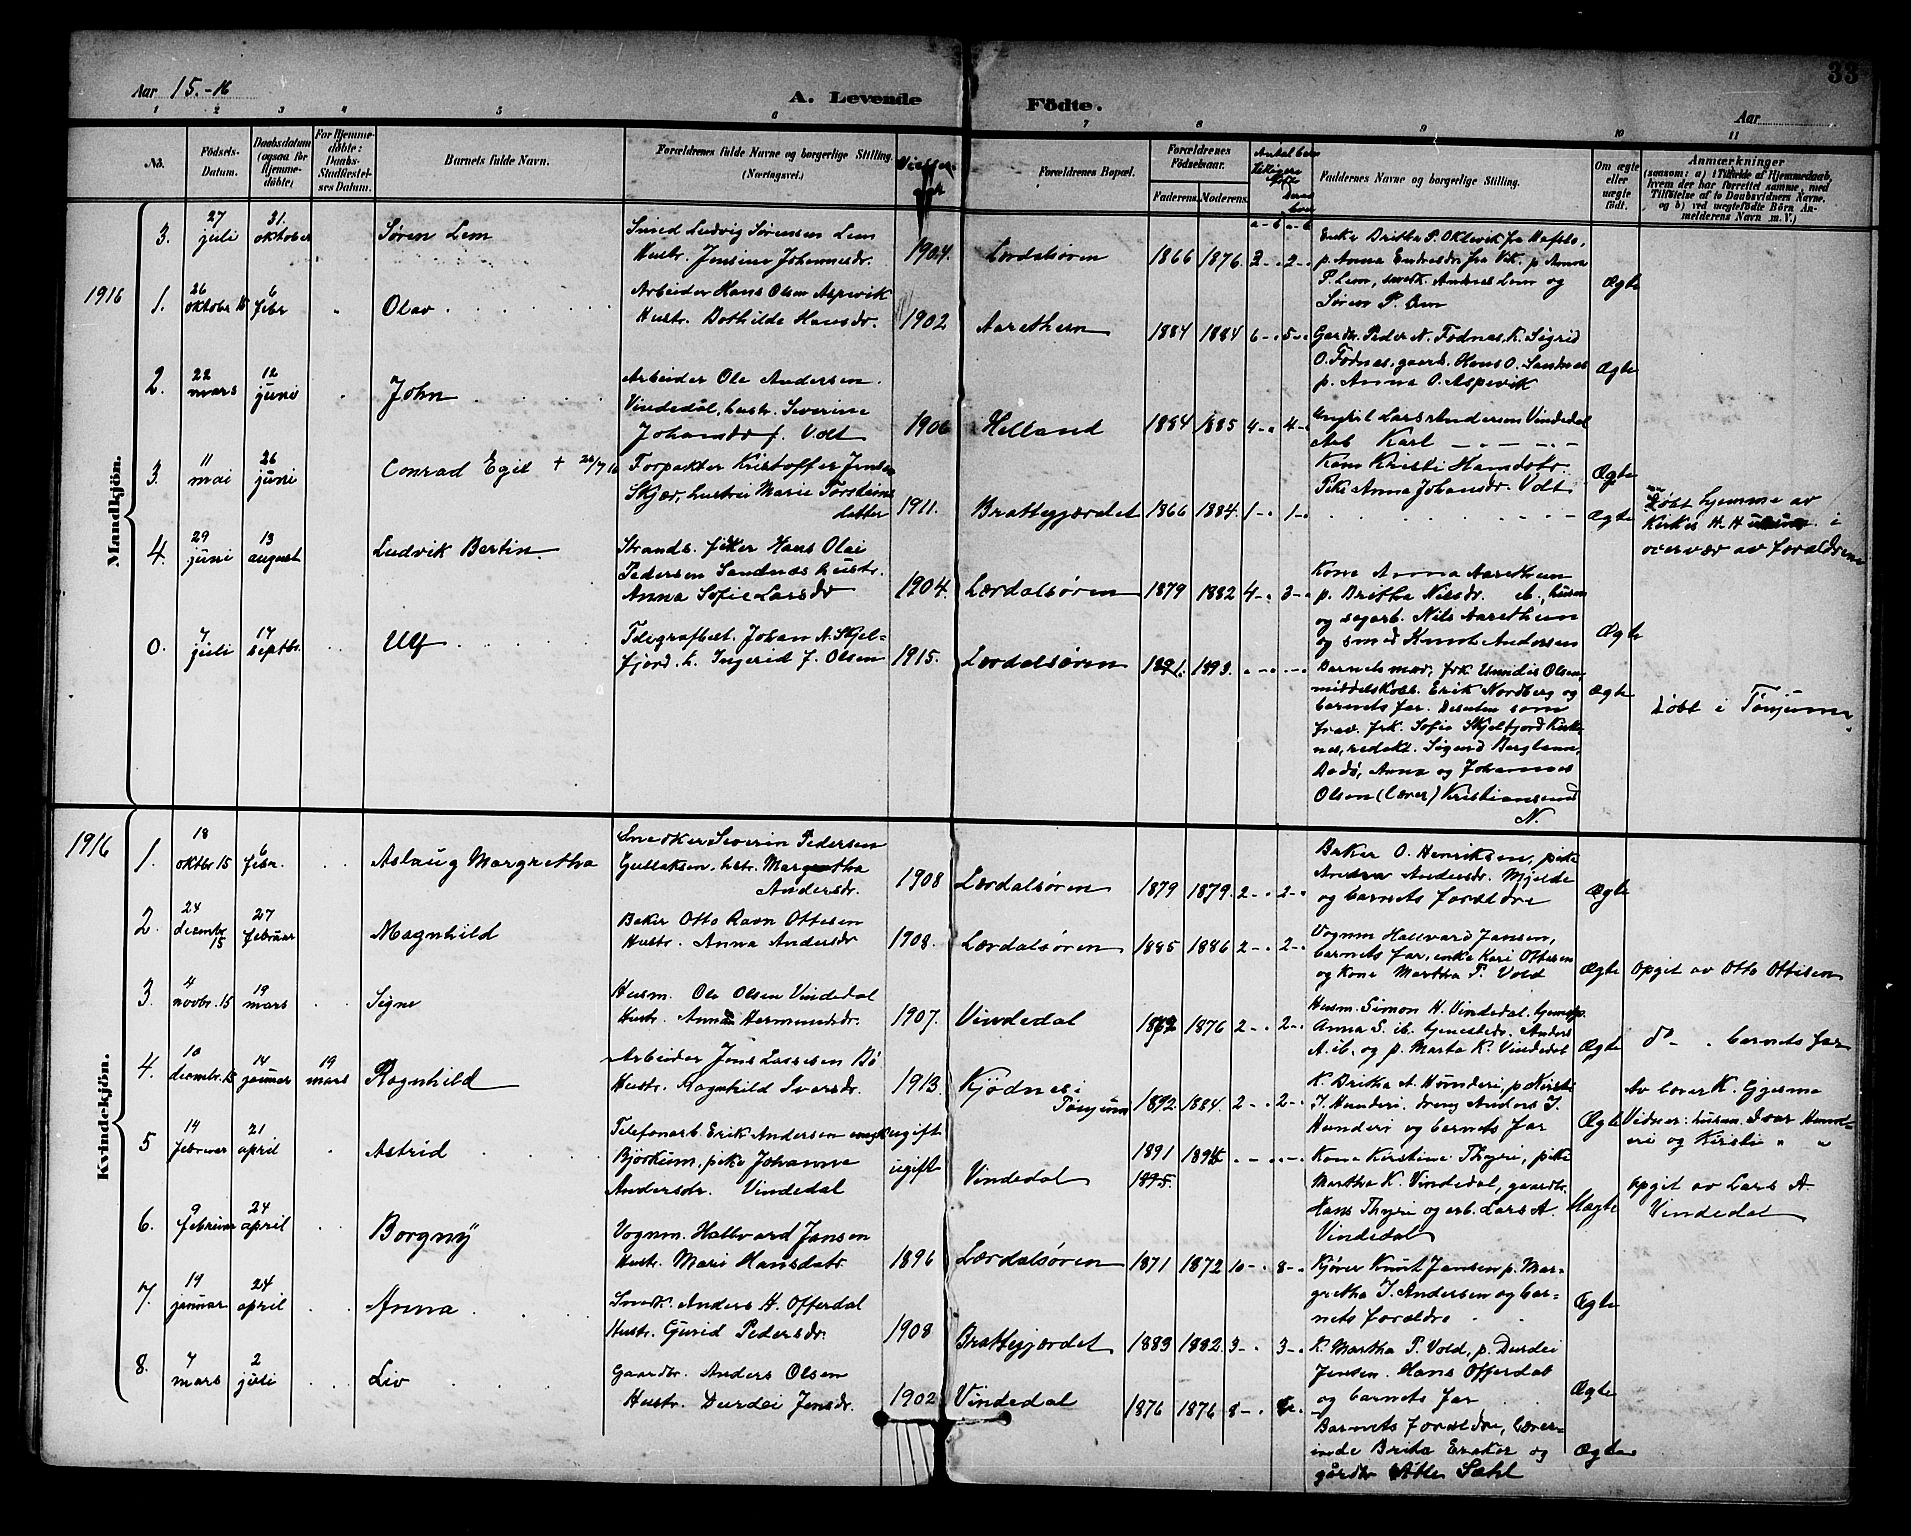 Aar 15.-16
A. Levende Födte.
Aar
33
1 2 3 4 5 6 7 8 9 10 11
No.
Födsels-Datum.
Daabsdatum (ogsaa for Hjemmedöbte;
For Hjemmedöbte: Daabs-Stadfæstelses Datum.
Barnets fulde Navn.
Forældrenes fulde Navne og borgerlige Stilling.
(Næringsvei.)
Forældrenes Bopæl.
Forældrenes Födselsaar.
Faderens. Moderens.
Faddernes Navne og borgerlige Stilling.
Om ægte eller uægte födt.
Anmærkninger
(saasom: a) i Tilfælde af Hjemmedaab, hvem der har forrettet samme, med Tilföielse af to Daabsvidners Navne. og b) ved uægtefödte Börn Anmelderens Navn m. V.)
Mandkjön.
3. 27 juli 31. oktober Søren Lem
Smed Ludvig Sørensen Lem
Hustr. Jensine Johannesdr. 1904. Lærdalsøren 1866 1876. 2 - . 2 - .
Enke Britha P. Oklevik fra Hafslo,
p. Anna Endresdr. fra Vik, p. Anna
P. Lem, smedk. Andreas Lem og
Søren P. Lem Ægte
1916 1. 26 oktober 15 6 febr Olav
Arbeider Hans Olsen Aspevik
Hustr. Bothilde Hansdr. 1902 Aarethem 1884 1884 6 - . 5 - .
Gardbr. Peder N. Fodnas. K. Sigrid
O. Fodnas, gaarb. Hans O. Sandnes
p. Anna O. Aspevik Ægte
2. 22 mars 12 juni John
Arbeider Ole Andersen
Vindedal, hustr. Severine
Johansdr f. Volt 1906 Helland 1884 1885 4 - . 4 - .
Ungkal Lars Andersen Vindedal
Arb Karl - - - - -
Kone Kristi Hansdotr.
Pike Anna Johansdr. Volt Ægte
3. 11 mai 26 juni Conrad Egil + 26/7 16
Forpakter Kristoffer Jensen
Skjær, hustru Marie Torsteins
datter 1911. Brattegjærdet 1866 1884. 1 - . 1 - .
Ægte
Døbt hjemme av
Kirkes. H. Husum i
overvær av forældrene
4. 29 juni 13 august Ludvik Bertin
Strands. fisker Hans Olai
Pedersen Sandnæs hustr.
Anna Sofie Larsdr 1904. Lærdalsøren 1879 1882 4 - . 3 - .
Kone Anna Aarethem
p. Britha Nilsdr. ib., husm
og sagarb. Nils Aarethem
og smed Knut Andersen Ægte
0. 7 juli 17 septbr. Ulf
Telegrafbest. Johan A. Skjel-
fjord, h. Ingerid f. Olsen 1915. Lærdalsøren 1891. 1893.
Barnets mor, frk Unndis Olsen,
middelskolb. Erik Nordberg og
barnets far. Desuten som
frav. frk. Sofie Skjelfjord Kirke-
nes, redakt. Sigurd Berglann,
Bodö, Anna og Johannes
Olsen (Lærer) Kristiansund
N. Ægte
Døbt i Tønjum.
Kvindekjön.
1916 1. 18 oktbr 15 6 febr. Aslaug Margretha
Snedker Severin Pedersen
Gullaksen, hstr. Margretha
Andersdr. 1908 Lærdalsøren 1879 1879. 2 - . 2 - .
Baker O. Henriksen, pike
Andrea Andersdr. Mjelde
og barnets forældre Ægte
2. 24 decembr 15 27 februar Magnhild
Baker Otto Ravn Ottesen
Hustr. Anna Andersdr 1908. Lærdalsøren 1885 1886 2 - . 2 - .
Vognm Hallvard Jansen,
barnets far, enke Kari Ottesen
og kone Martha P. Vold Ægte opgit av Otto Ottesen
3. 4 novbr. 15 19 mars Signe
Husm. Ole Olsen Vindedal
Hustr. Anna Hermundsdr. 1907. Vindedal 1862 1876 2 - . 2 - .
Husm. Simon H. Vindedal, tjenestp.
Anna S. ib. tjenestedr. Anders
A. ib. og p. Marta K. Vindedal Ægte do - . barnets far
4. 10 decembr. 15 14 januar 19 mars Ragnhild
Arbeider Jens Lassesen Bö
Hustr. Ragnhild Ivarsdr. 1913. Kjödnes i
Tønjum 1892. 1884. 2 - . 2 - .
K. Britha A. Hunderi, p Kirsti
I. Hunderi. dreng Anders I.
Hunderi og barnets far Ægte
Av lærer K. Gjesme
Vidner: husm. Ivar Hund-
eri og Kirsti " "
5 14 februar 21 april Astrid
Telefonarb. Erik Andersen ungk ugift
Bjorkum, pike Johanna ugift
Andersdr. Vindedal Vindedal 1891 1894 1895.
Kone Kirstine Thyri, pike
Martha K. Vindedal, gaardbr.
Hans Thyri og arb. Lars A.
Vindedal Uægte
opgit av Lars A.
Vindedal
6. 9 februar 24 april Borgny
Vognm. Hallvard Jansen
Hustr. Mari Hansdatr. 1896 Lærdalsøren 1871 1872 10 - . 8 - .
Kjører Knut Jansen p. Mar-
gretha J. Andersen og bar-
nets forældre Ægte
7. 19 januar 24 april Anna
Smek. Anders H. Offerdal
Hustr. Gurid Pedersdr. 1908 Brattegjærdet 1883 1882. 3 - . 3 - .
K. Martha P. Vold, p. Durdei
Jensen. Hans Offerdal
og barnets far Ægte
8. 7 mars 2 juli Liv
Gaardbr. Anders Olsen
Hustr. Durdei Jensdr. 1902 Vindedal 1876 1876 8 - .
Barnets forældre, Lærer-
inde Brita Eraker og
gårdbr Atle Sæhl Ægte